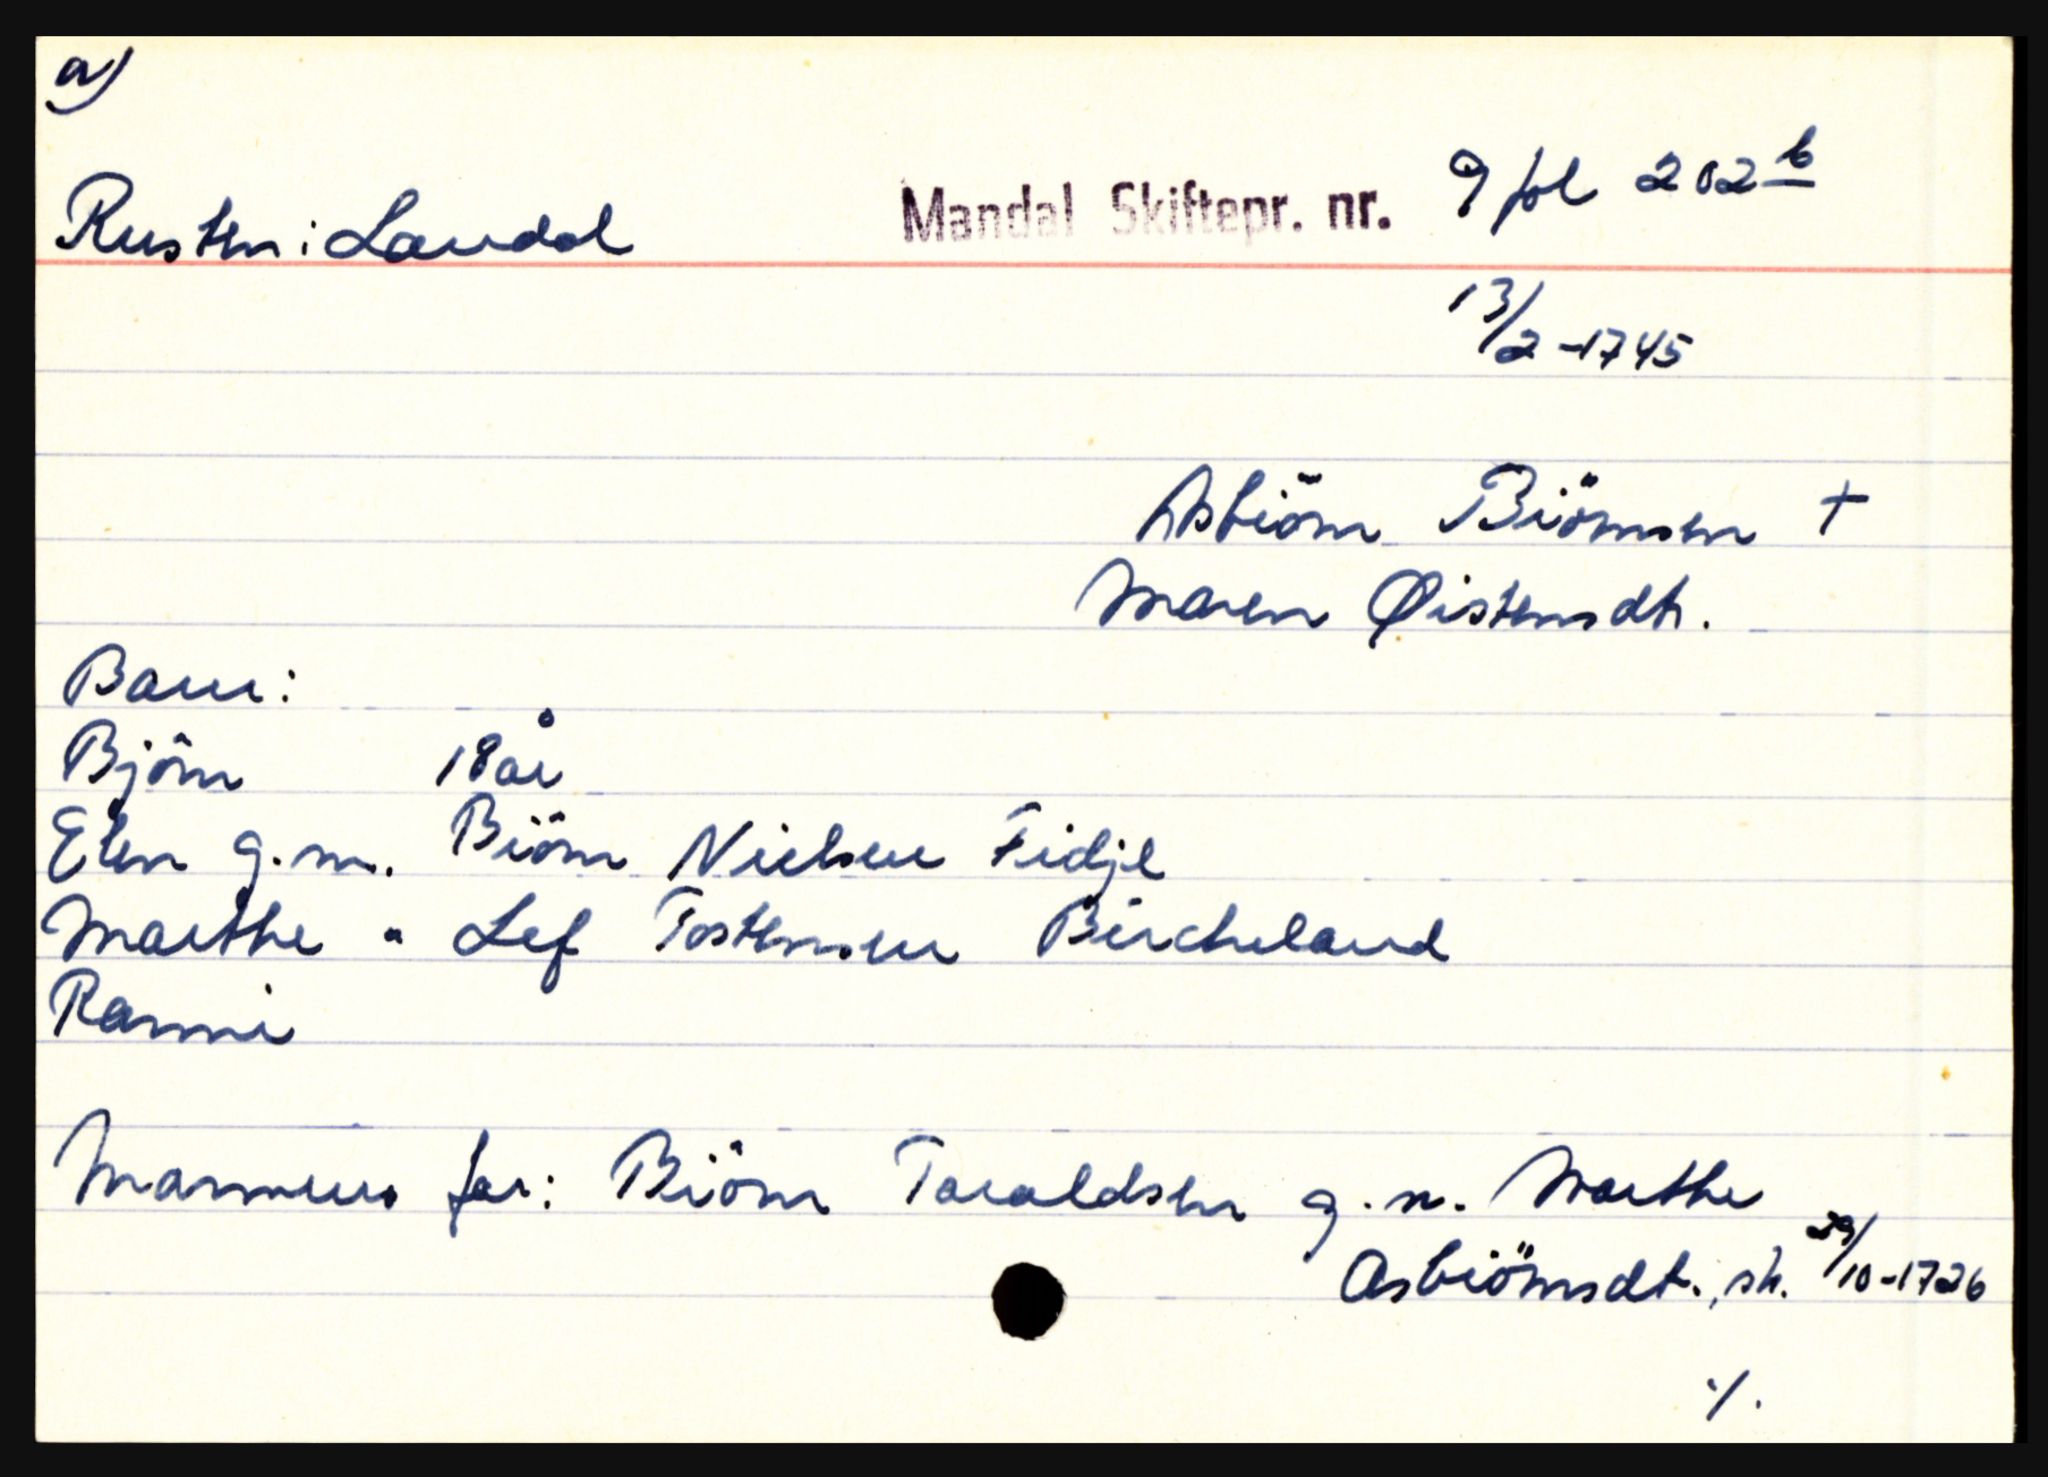 a)
Rusten i Laudal Mandal Skiftepr. nr. 9 fol 202 b
13/2-1745
Asbiörn Biörnsen +
Maren Øistensdtr.
Barn:
Björn 18 år
Elen g.m. Biörn Nielsen Fidje
Marthe " Lef Tostensen Bircheland
Ranni
Mannens far: Biörn Taraldsen g.m. Marthe
Asbiörnsdt., sk. 29/10-1726
./.